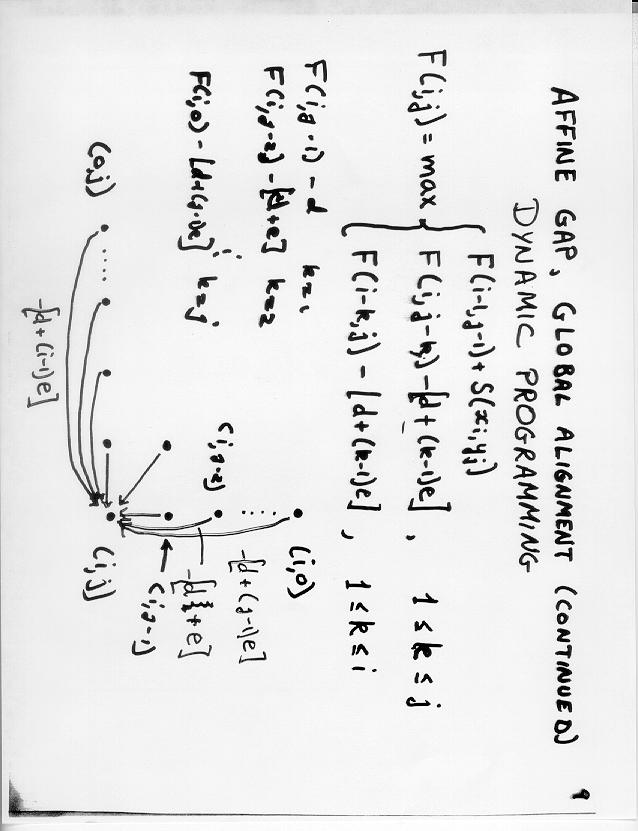 9
AFFINE GAP, GLOBAL ALIGNMENT (CONTINUED)
DYNAMIC PROGRAMMING
F(i-1,j-1) + S(xi,yj)
F(i,j) = max { F(i,j-k) - [d + (k-1)e], 1 ≤ k ≤ j
F(i-k,j) - [d + (k-1)e], 1 ≤ k ≤ i
F(i,j-1) - d k=1
F(i,j-2) - [d+e] k=2
F(i,0) - [d+(j-1)e] k=j
(i,0)
-[d + (j-1)e]
(i,j-2)
-[d + e]
(i,j-1)
(0,j)
(i,j)
-[d + (i-1)e]